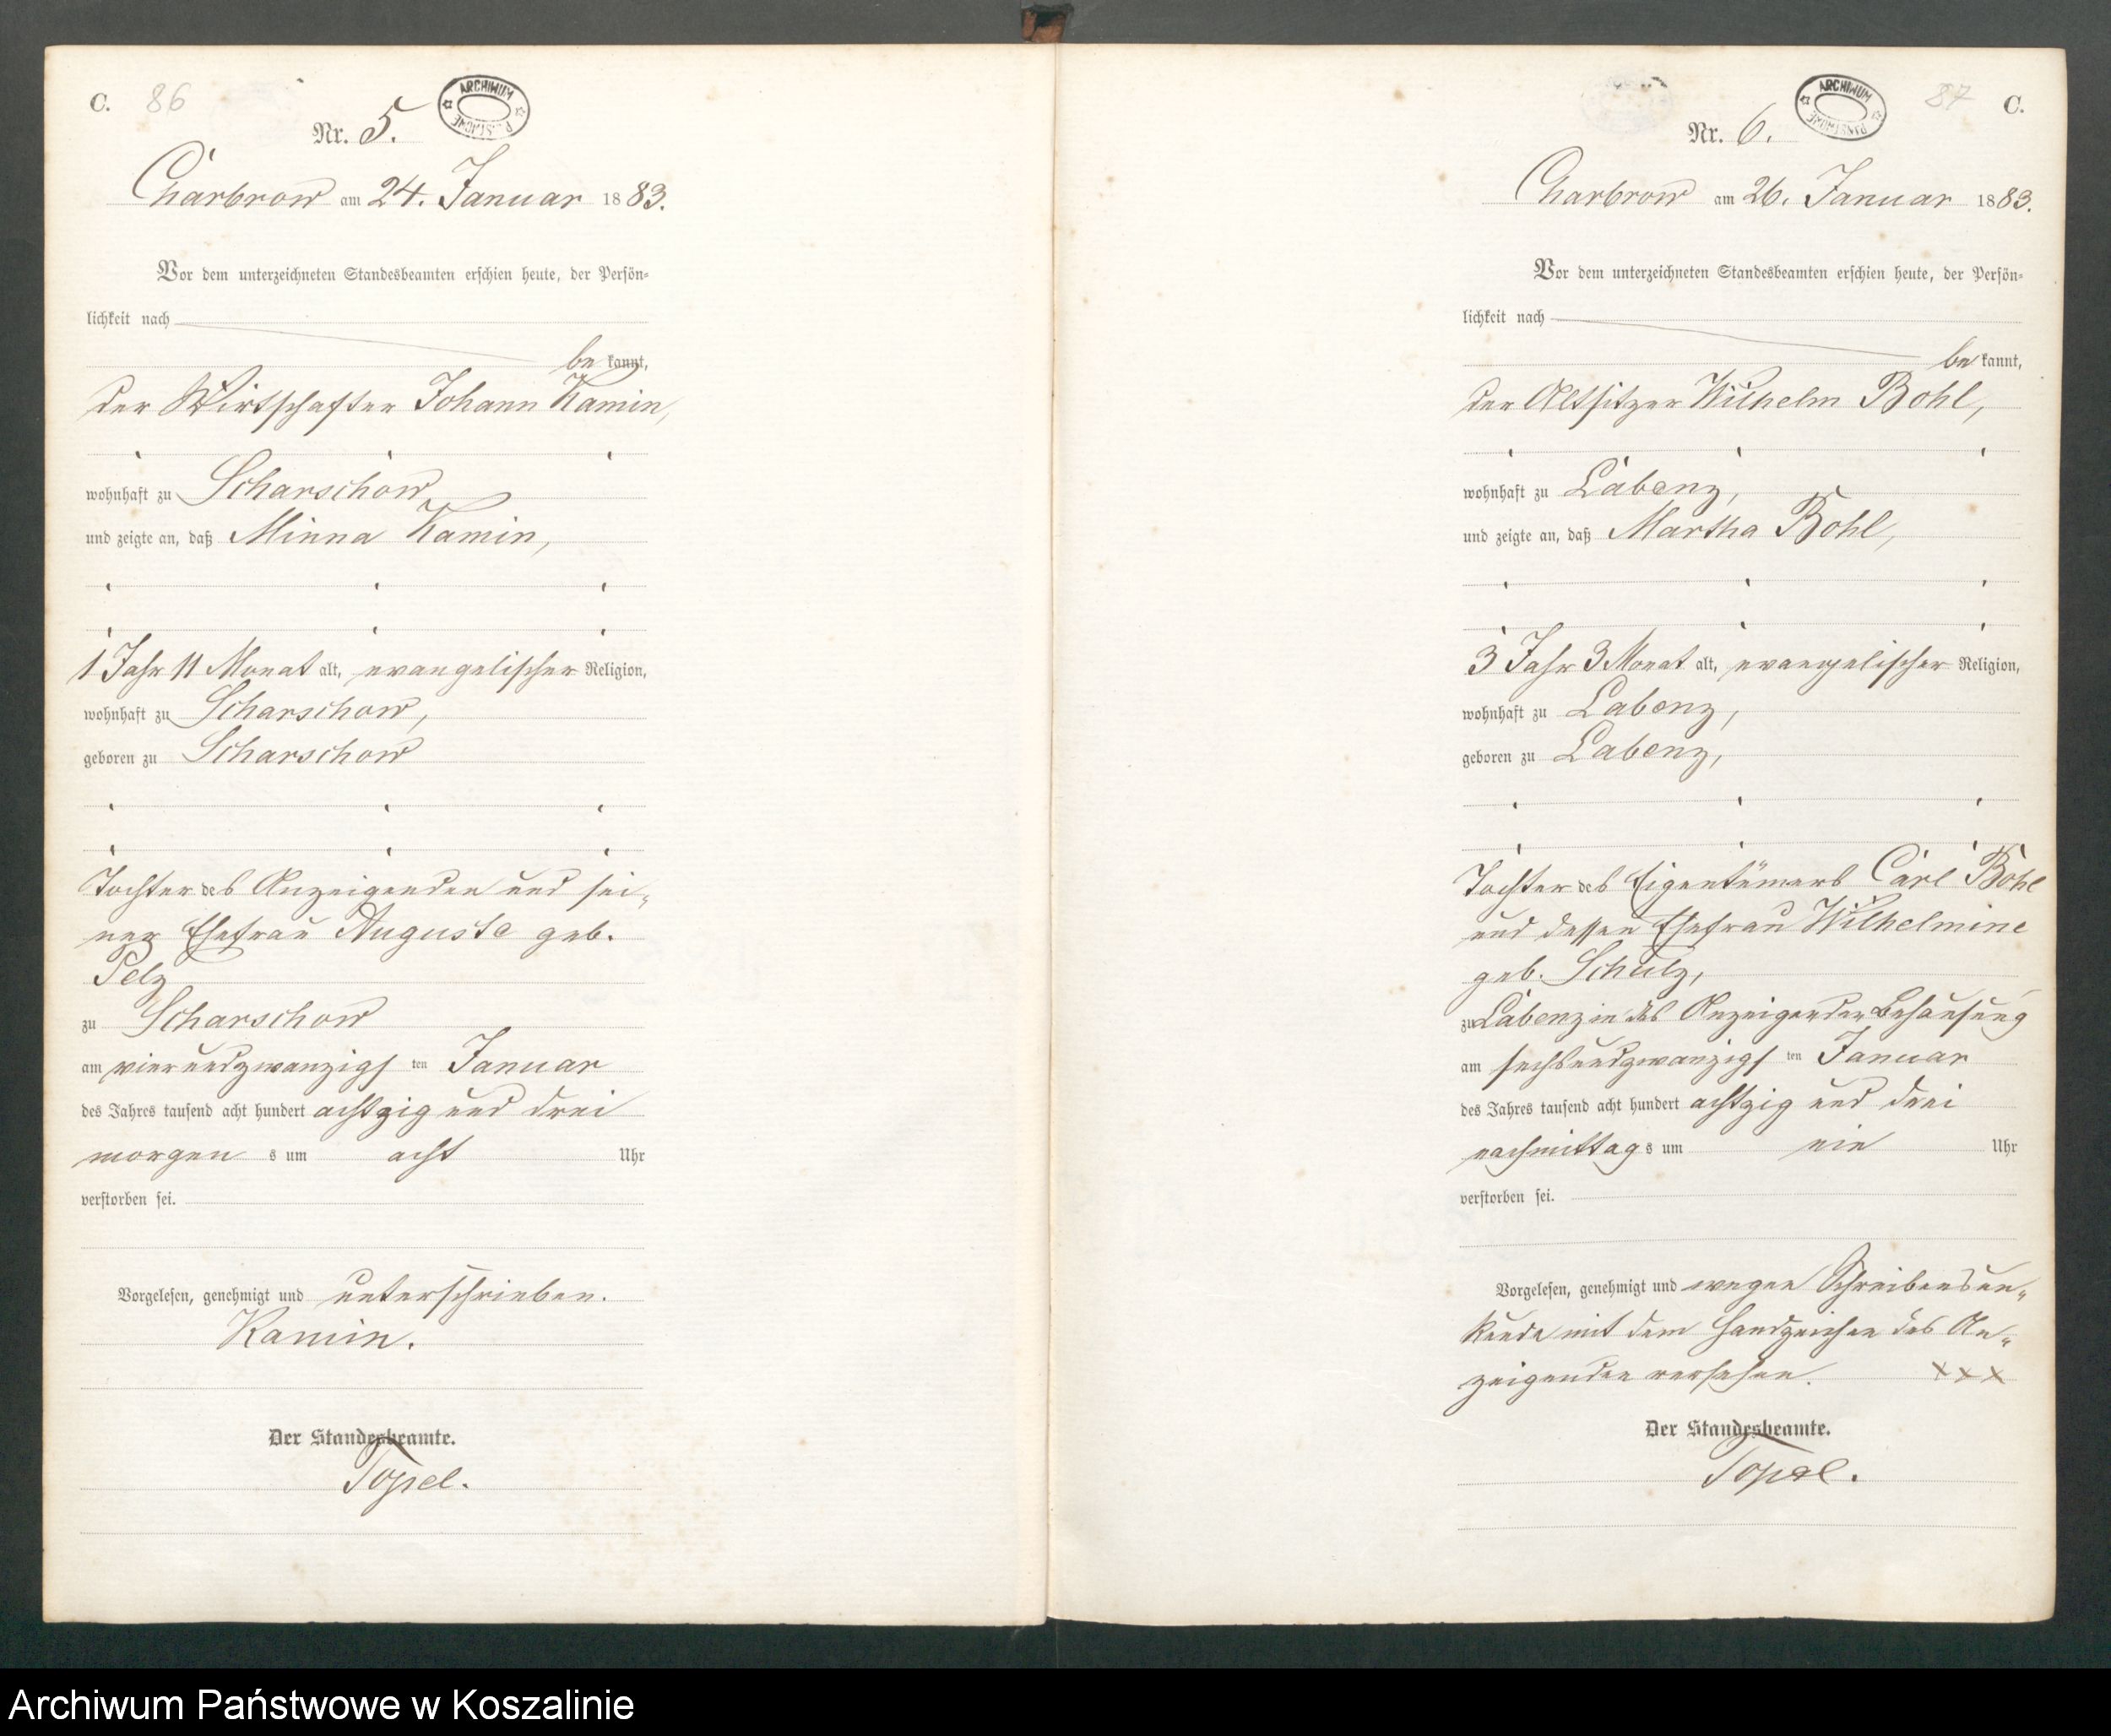 C. 86
ARCHIWUM PAŃSTWOWE
Nr. 5.
Charbrow am 24. Januar 1883.
Vor dem unterzeichneten Standesbeamten erschien heute, der Persön-
lichkeit nach
be kannt,
der Wirtschafter Johann Kamin,
wohnhaft zu Scharschow
und zeigte an, daß Minna Kamin,
1 Jahr 11 Monat alt, evangelischer Religion,
wohnhaft zu Scharschow,
geboren zu Scharschow
Tochter des Anzeigenden und sei-
ner Ehefrau Auguste geb.
Pelz
zu Scharschow
am vierundzwanzigs ten Januar
des Jahres tausend acht hundert achtzig und drei
morgen s um acht Uhr
verstorben sei.
Vorgelesen, genehmigt und unterschrieben.
Kamin.
Der Standesbeamte.
Topel.
87 C.
ARCHIWUM PAŃSTWOWE
Nr. 6.
Charbrow am 26. Januar 1883.
Vor dem unterzeichneten Standesbeamten erschien heute, der Persön-
lichkeit nach
be kannt,
der Altsitzer Wilhelm Bohl,
wohnhaft zu Labenz,
und zeigte an, daß Martha Bohl,
3 Jahr 3 Monat alt, evangelischer Religion,
wohnhaft zu Labenz,
geboren zu Labenz,
Tochter des Eigentümers Carl Bohl
und dessen Ehefrau Wilhelmine
geb. Schulz,
zu Labenz in des Anzeigenden Behausung
am sechsundzwanzigs ten Januar
des Jahres tausend acht hundert achtzig und drei
nachmittag s um ein Uhr
verstorben sei.
Vorgelesen, genehmigt und wegen Schreibensun-
kunde mit dem Handzeichen des An-
zeigenden versehen. XXX
Der Standesbeamte.
Topel.
Archiwum Państwowe w Koszalinie